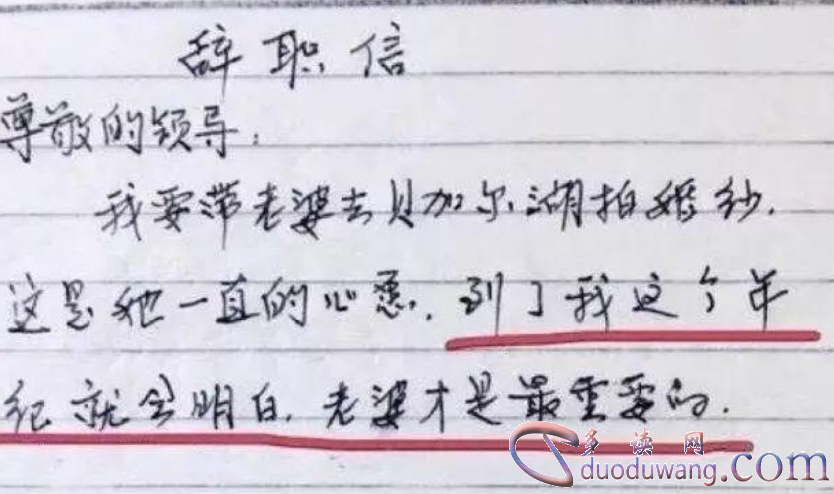 辞职信
尊敬的领导：
我要带老婆去贝加尔湖拍婚纱.
这是她一直的心愿.到了我这个年
纪就会明白.老婆才是最重要的.
多读网
duoduwang.com